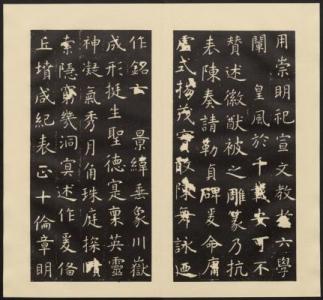 用崇明祀宣文教於六學
闡 皇風於千載安可不
贊述徽猷被之雕篆乃抗
表陳奏請勒貞碑爰命庸
虛式揚茂實敢陳舞詠迺
作銘云 景緯垂象川嶽
成形挺生聖德寔稟英靈
神凝氣秀月角珠庭探賾
索隱窮幾洞冥述作爰俻
丘墳咸紀表正十倫章明